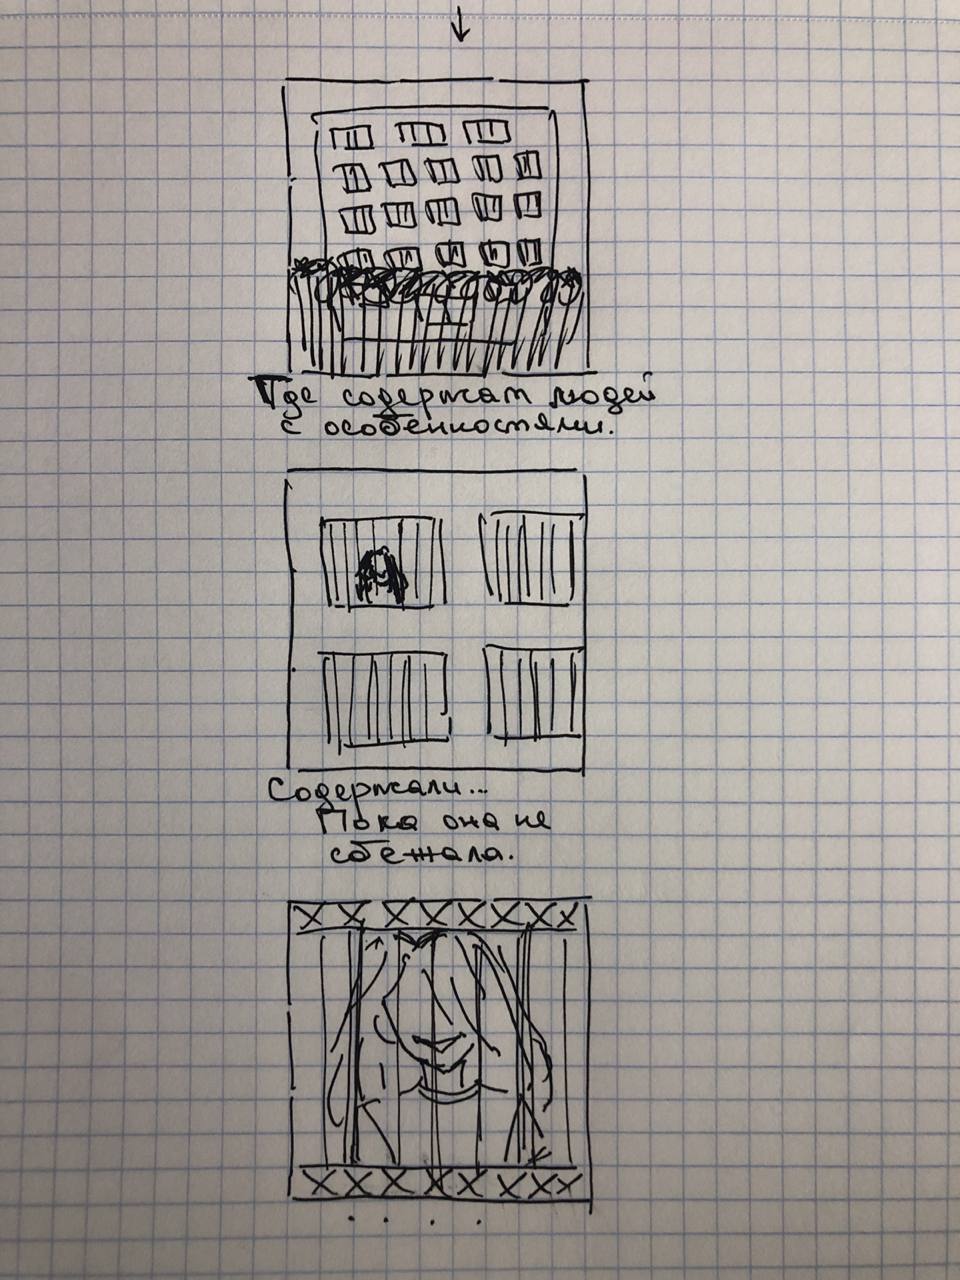 Где содержат людей
с особенностями.
Содержали...
Пока она не
сбежала.
....